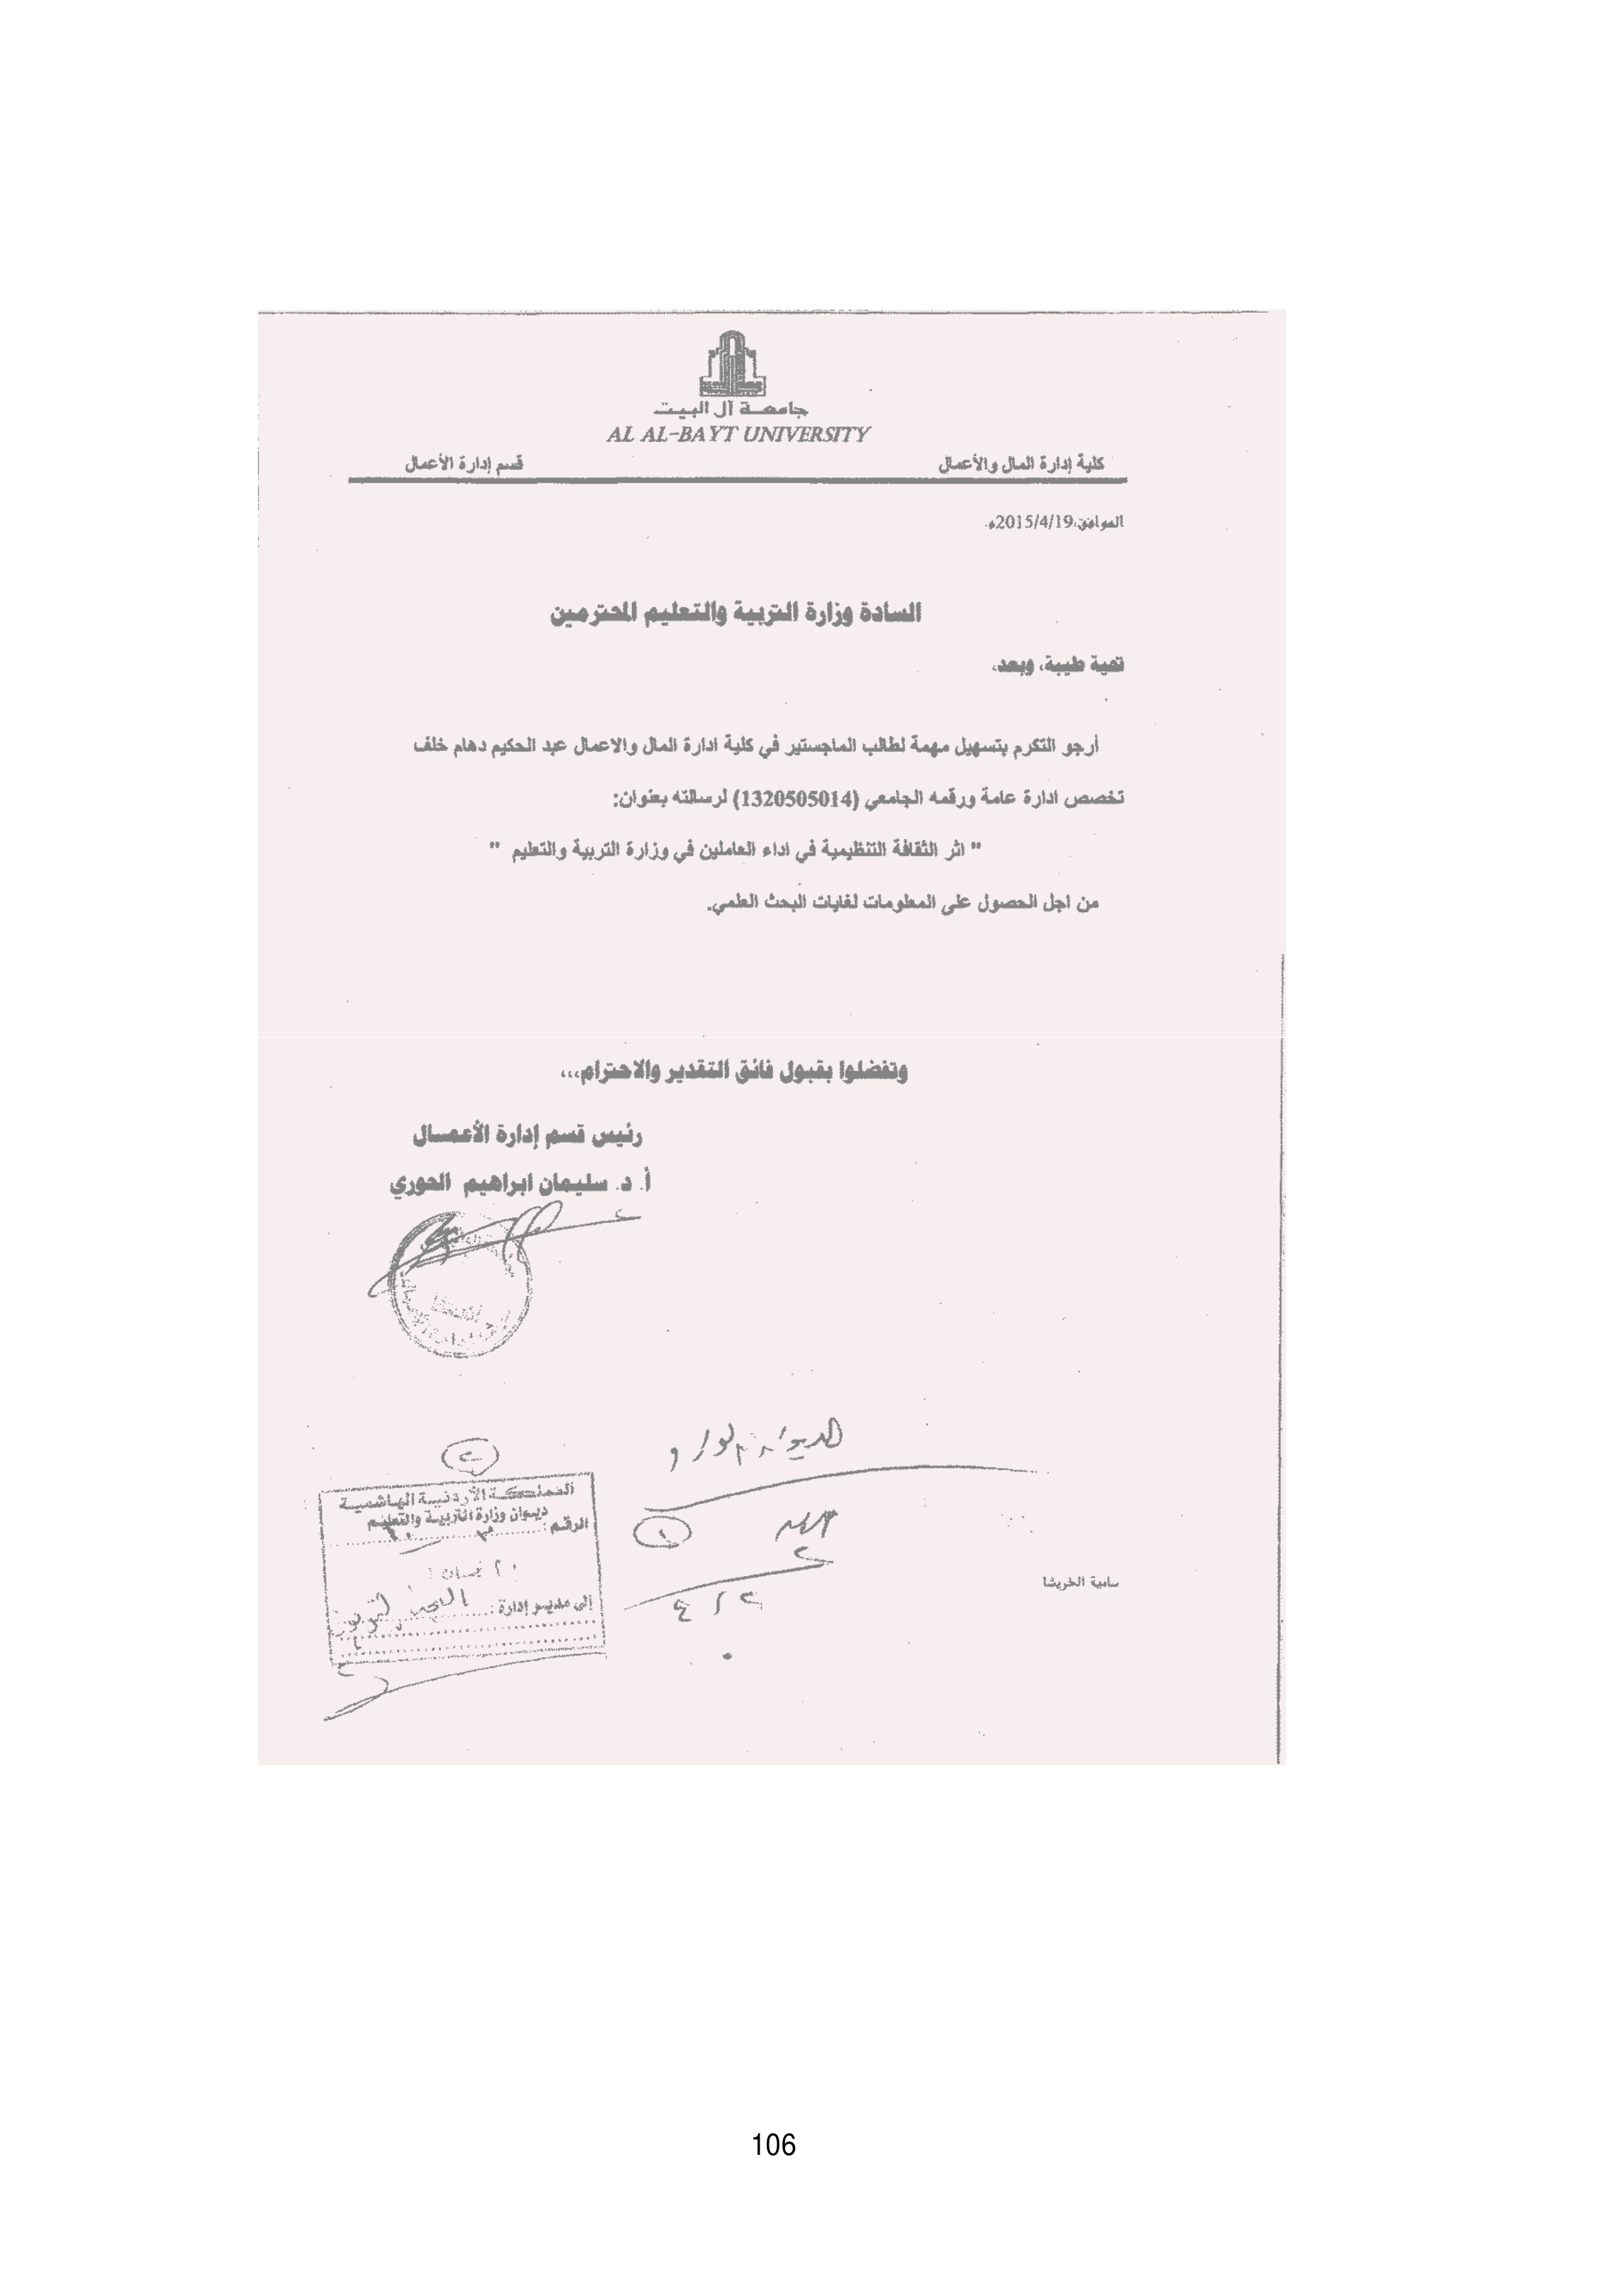 جامعة آل البيت
AL AL-BAYT UNIVERSITY
كلية إدارة المال والأعمال
قسم إدارة الأعمال
الموافق:2015/4/19م.
السادة وزارة التربية والتعليم المحترمين
تحية طيبة، وبعد،
أرجو التكرم بتسهيل مهمة لطالب الماجستير في كلية ادارة المال والاعمال عبد الحكيم دهام خلف
تخصص ادارة عامة ورقمه الجامعي (1320505014) لرسالته بعنوان:
" اثر الثقافة التنظيمية في اداء العاملين في وزارة التربية والتعليم "
من اجل الحصول على المعلومات لغايات البحث العلمي.
وتفضلوا بقبول فائق التقدير والاحترام،،،
رئيس قسم إدارة الأعمال
أ. د. سليمان ابراهيم الحوري
المملكة الأردنية الهاشمية
ديوان وزارة التربية والتعليم
الرقم:
إلى مدير إدارة:
سامية الخريشا
106